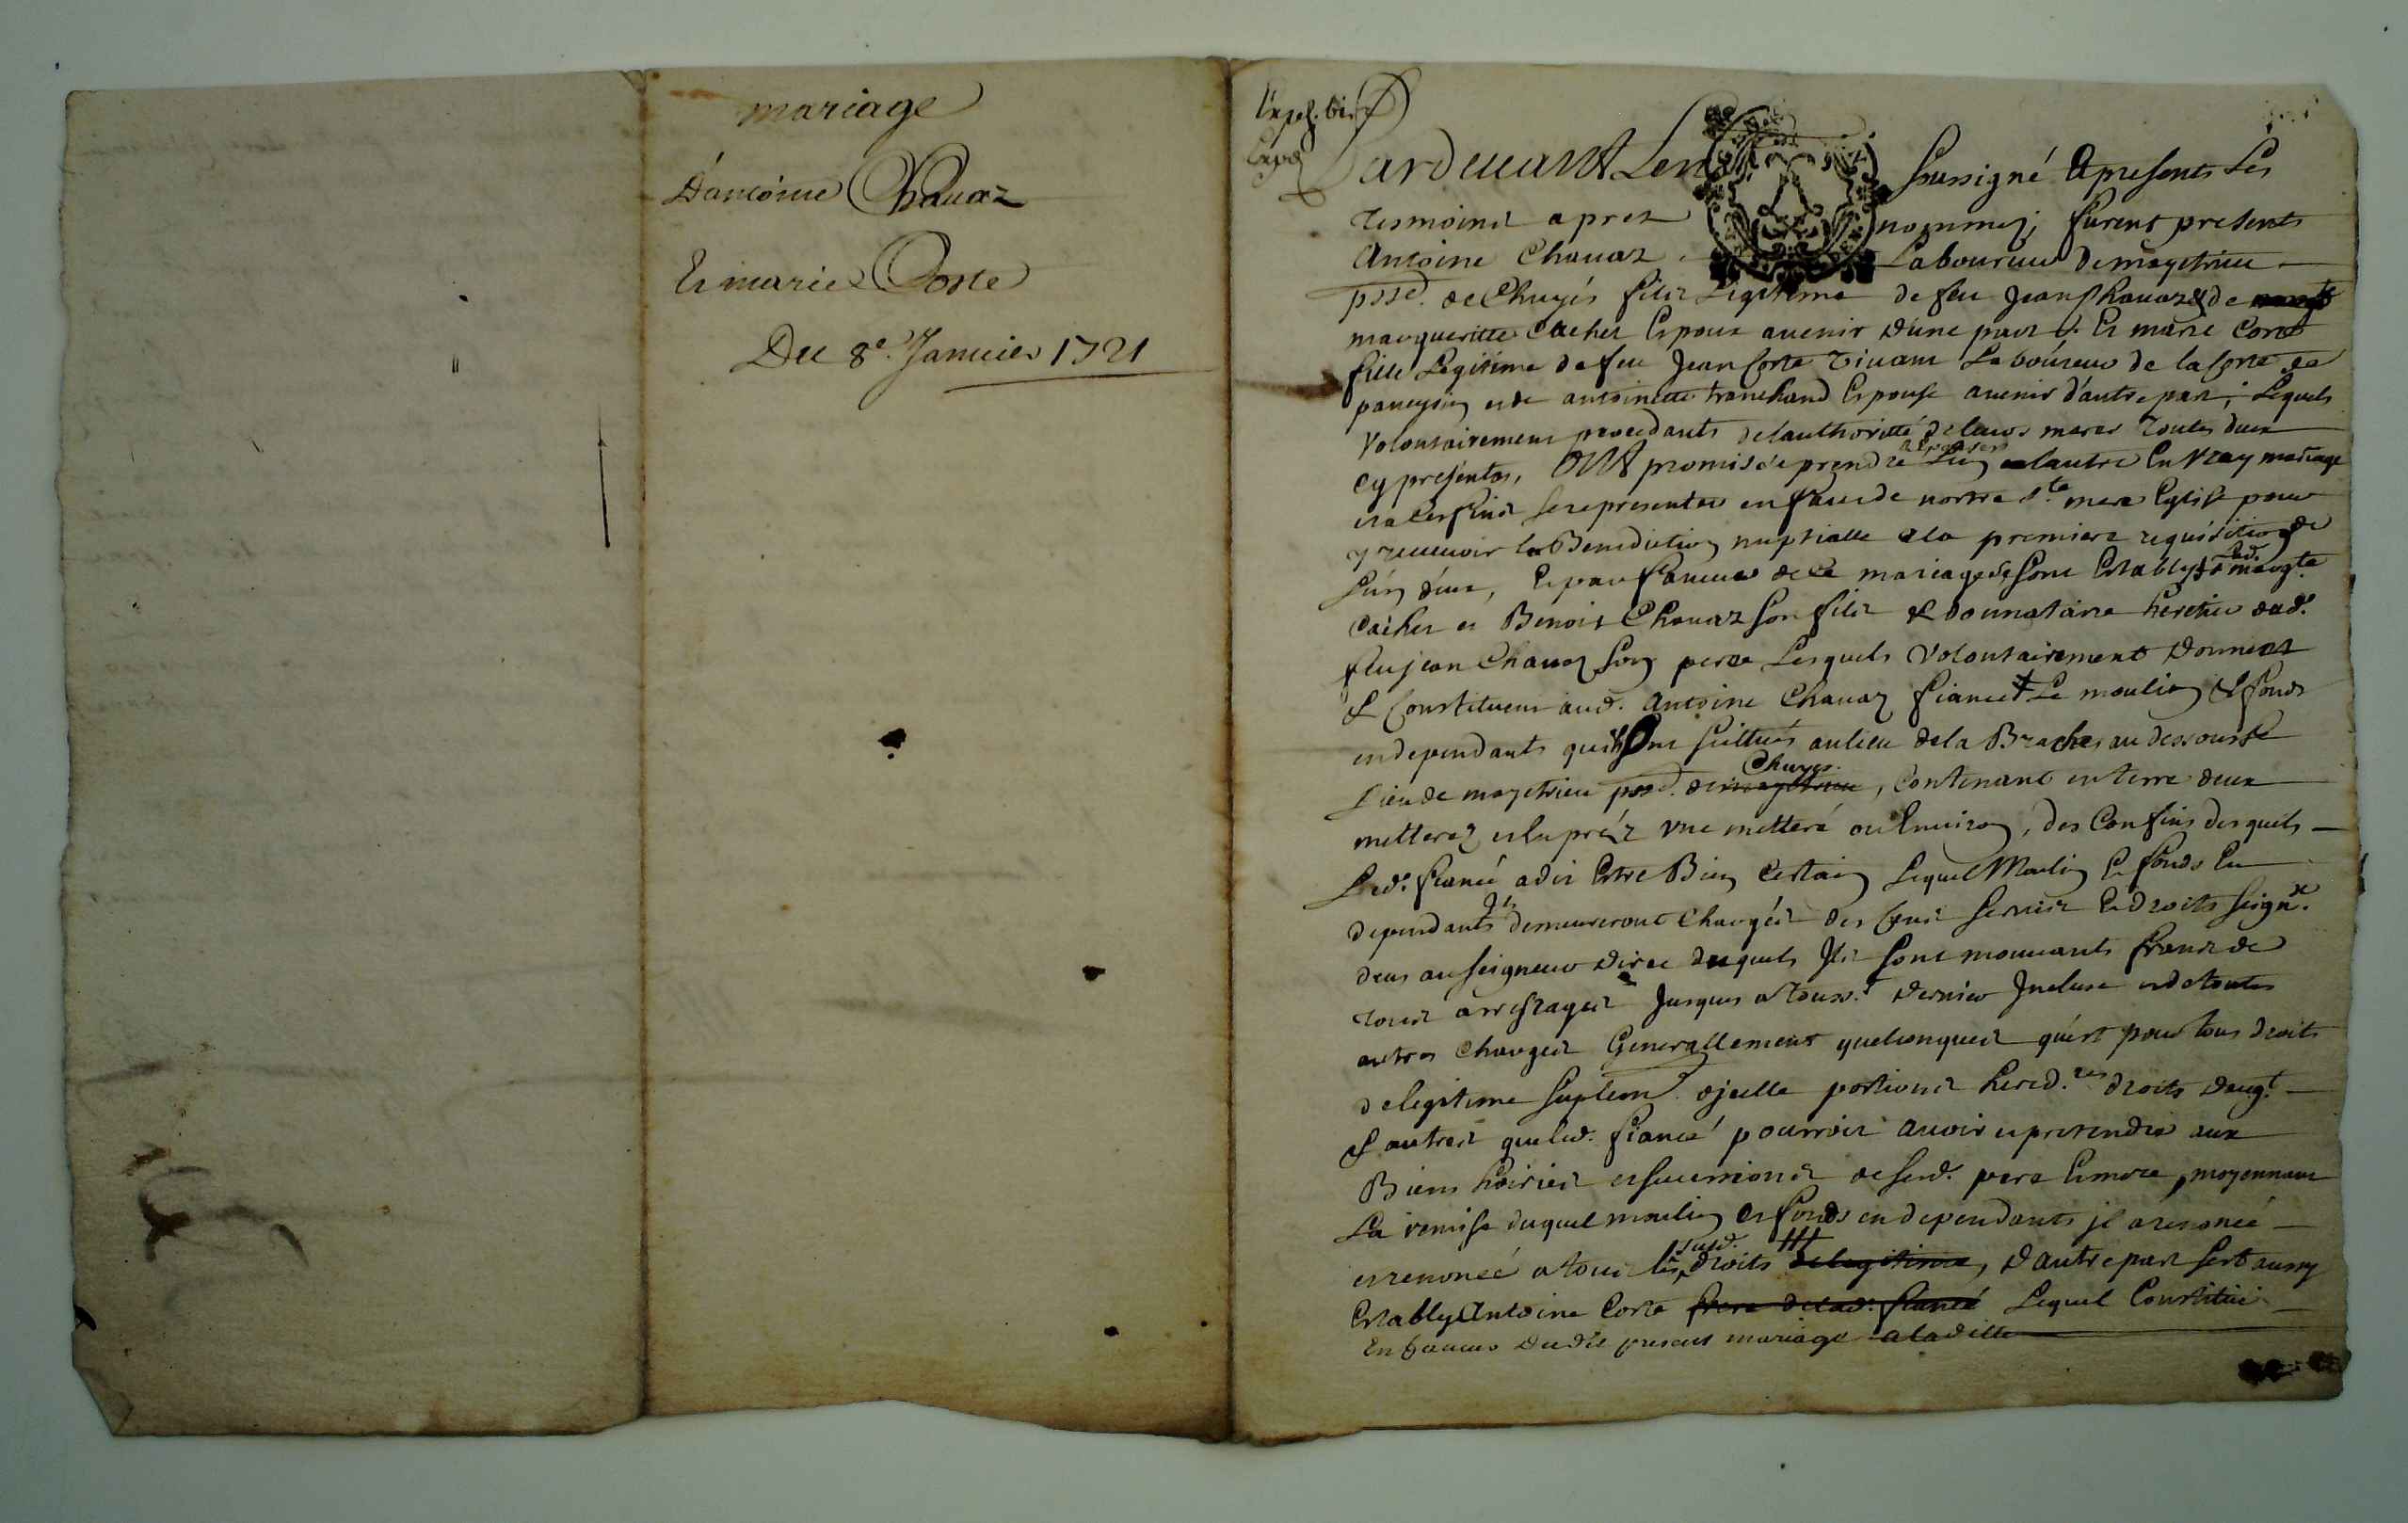 mariage
D'antoine Chauaz
Et marie Coste
Du 8e. Januier 1721
Expd. bis
Expd
Pardeuant Le no soussigné & presents Les
tesmoins apres nommez, furent presents
Antoine Chauaz Laboureur de meyetrieu
psse. de Chuyés filz Legitime de feu Jean Chauaz & de
margueritte Cacher Espoux auenir d'une part Et marie Coste
fille Legitime de feu Jean Coste viuant Laboureur de la Coste de
paueysin et de antoinette tranchand Espouse auenir d'autre part, Lequels
Volontairement procedants de lauthorité de leurs meres toutes deux
cy presentes, Ont promis de prendre & Epouser Lun lautre En vray mariage
et a ces fins se representer en face de nostre ste. mere Eglise pour
y receuoir la Benediction nuptialle a la premiere requisition de
Lun d'eux, Et par faueur de Ce mariage se sont Establys lad. margte.
Cacher et Benoit Chauaz son filz & donnataire heritier dud.
feu jean Chauaz son pere Lesquels Volontairement donnent
& Constituent aud. Antoine Chauaz fiancé Le moulin & fonds
en dependants quils Ont scittués au lieu de la Braches au dessous le
Lieu de meyetrieu psse. de meyetrieu Chuyes, Contenant en terre deux
metterez et en préz vne metteré ou Enuiron, des Confins desquels
Led. fiancé a dit Estre Bien Certain Lequel Moulin & fonds En
dependants Ils demeureront Chargés des Cens seruis & droits seigrx.
deus au seigneur direc duquels Ils sont mouuants francs de
tous arrerages Jusques a touss.t dernier Jncluse et de toutes
autres Charges Generallement quelconques qu'est pour tous droits
de legitime suplem.t d'jcelle portions hered.res droits daug.t
& autres que led. fiancé pourroit auoir et pretendre aux
Biens hoiries et successions de sesd. pere Et mere, moyennant
La remise duquel moulin et fonds en dependants jl a renoncé
et renoncé a tous les susd. droits de legitime, D'autre part s'est aussy
Establys Antoine Coste frere de lad. fiancé Lequel Constitue
En faueur du dit present mariage a la ditte